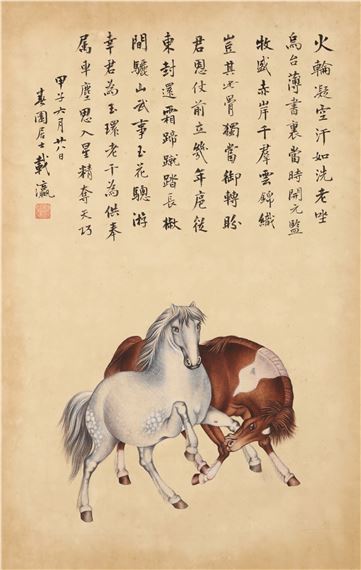 火輪凝空汗如洗老坐
烏台薄書裏當時開元監
牧盛赤岸千羣雲錦織
豈其骨獨當御轉盼
君恩仗前立幾年扈從
東封還霜蹄踠踏長楸
間驪山武事玉花驄游
幸君為玉環老千為供奉
屬車塵思入星精奪天巧
甲子六月廿八日
春園居士載瀛